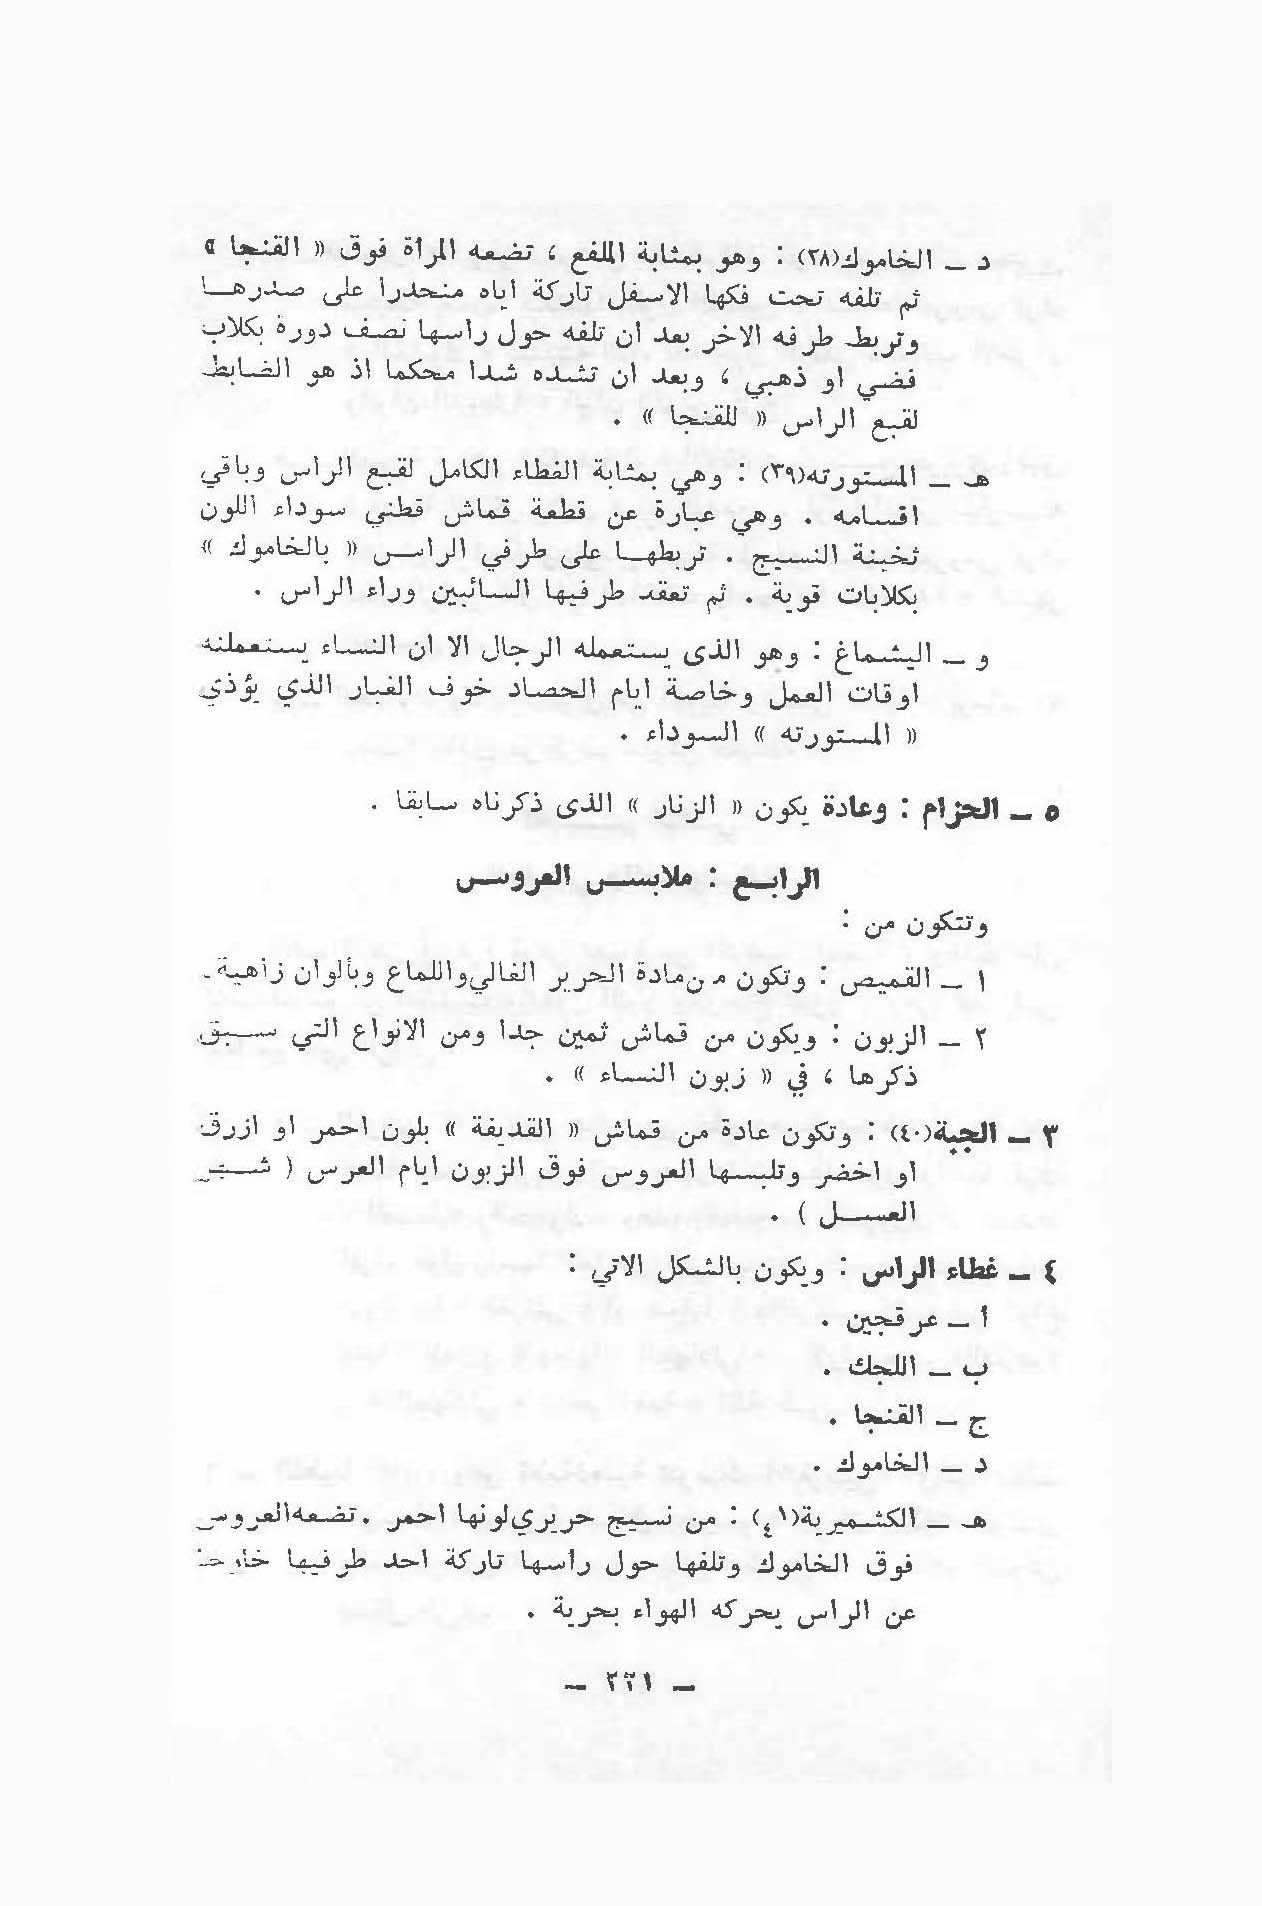 د ــ الخاموك(٣٨) : وهو بمثابة الملفع ، تضعه المرأة فوق « القنجا »
ثم تلفه تحت فكها الاسفل تاركة اياه منحدرا على صدرهــا
وتربط طرفه الاخر بعد ان تلفه حول راسها نصف دورة بكلاب
فضي او ذهبي ، وبعد ان تشده شدا محكما اذ هو الضابط
لقبع الراس « للقنجا » .
هـ ــ المستورته(٣٩) : وهي بمثابة الغطاء الكامل لقبع الراس وباقي
اقسامه . وهي عبارة عن قطعة قماش قطني سوداء اللون
ثخينة النسيج . تربطها على طرفي الراس « بالخاموك »
بكلابات قوية . ثم تعقد طرفيها السائبين وراء الراس .
و ــ اليشماغ : وهو الذى يستعمله الرجال الا ان النساء يستعملنه
اوقات العمل وخاصة ايام الحصاد خوف الغبار الذي يؤذي
« المستورته » السوداء .
٥ ــ الحزام : وعادة يكون « الزنار » الذى ذكرناه سابقا .
الرابع : ملابس العروس
وتتكون من :
١ ــ القميص : وتكون من مادة الحرير الغالي واللماع وبألوان زاهية .
٢ ــ الزبون : ويكون من قماش ثمين جدا ومن الانواع التي سبق
ذكرها ، في « زبون النساء » .
٣ ــ الجبة(٤٠) : وتكون عادة من قماش « القديفة » بلون احمر او ازرق
او اخضر وتلبسها العروس فوق الزبون ايام العرس ( شهر
العسل ) .
٤ ــ غطاء الراس : ويكون بالشكل الاتي :
أ ــ عرقجين .
ب ــ اللجك .
ج ــ القنجا .
د ــ الخاموك .
هـ ــ الكشميرية(٤١) : من نسيج حريري لونها احمر . تضعه العروس
فوق الخاموك وتلفها حول رأسها تاركة احد طرفيها خارجا
عن الراس يحركه الهواء بحرية .
ــ ٢٢١ ــ